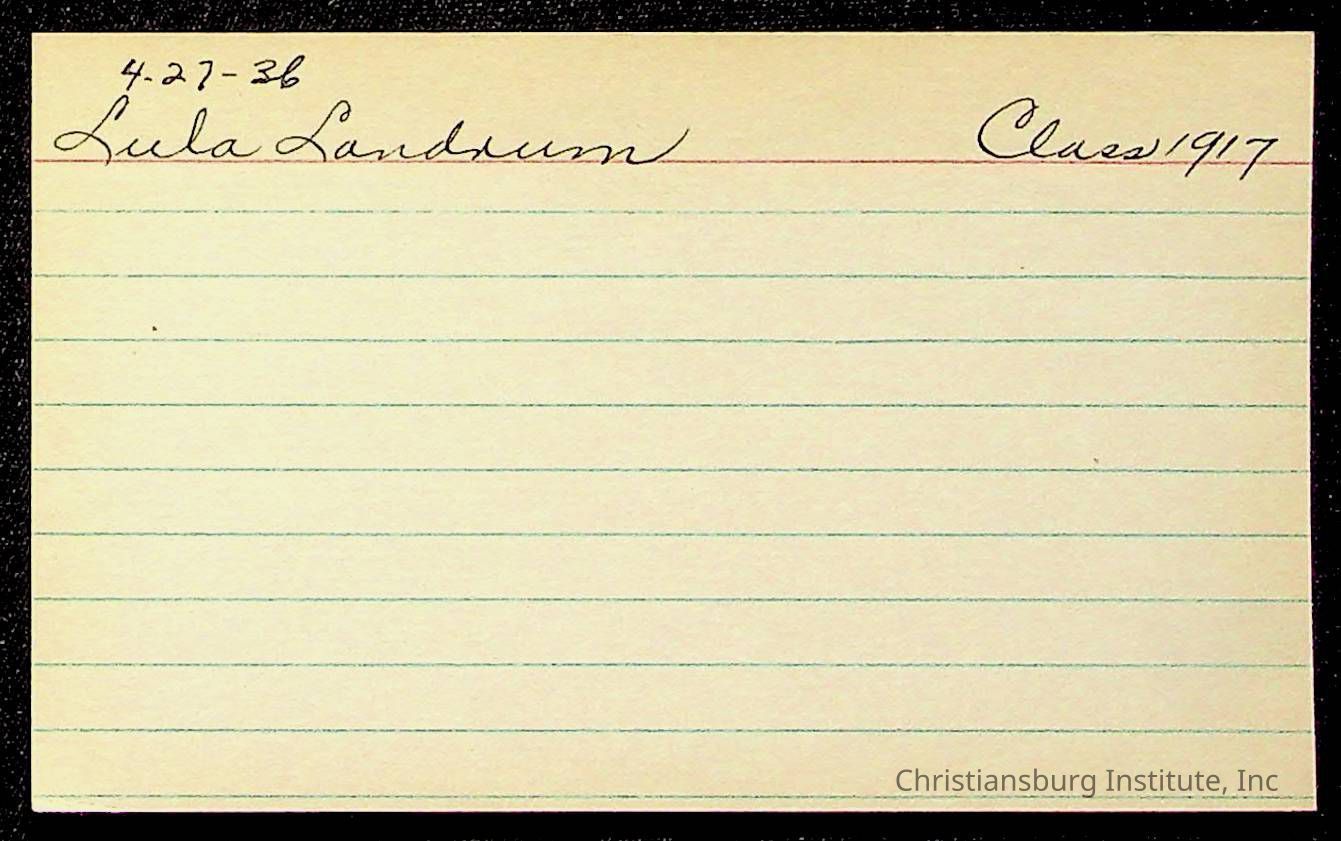 4-27-36
Lula Landrum Class 1917
Christiansburg Institute, Inc